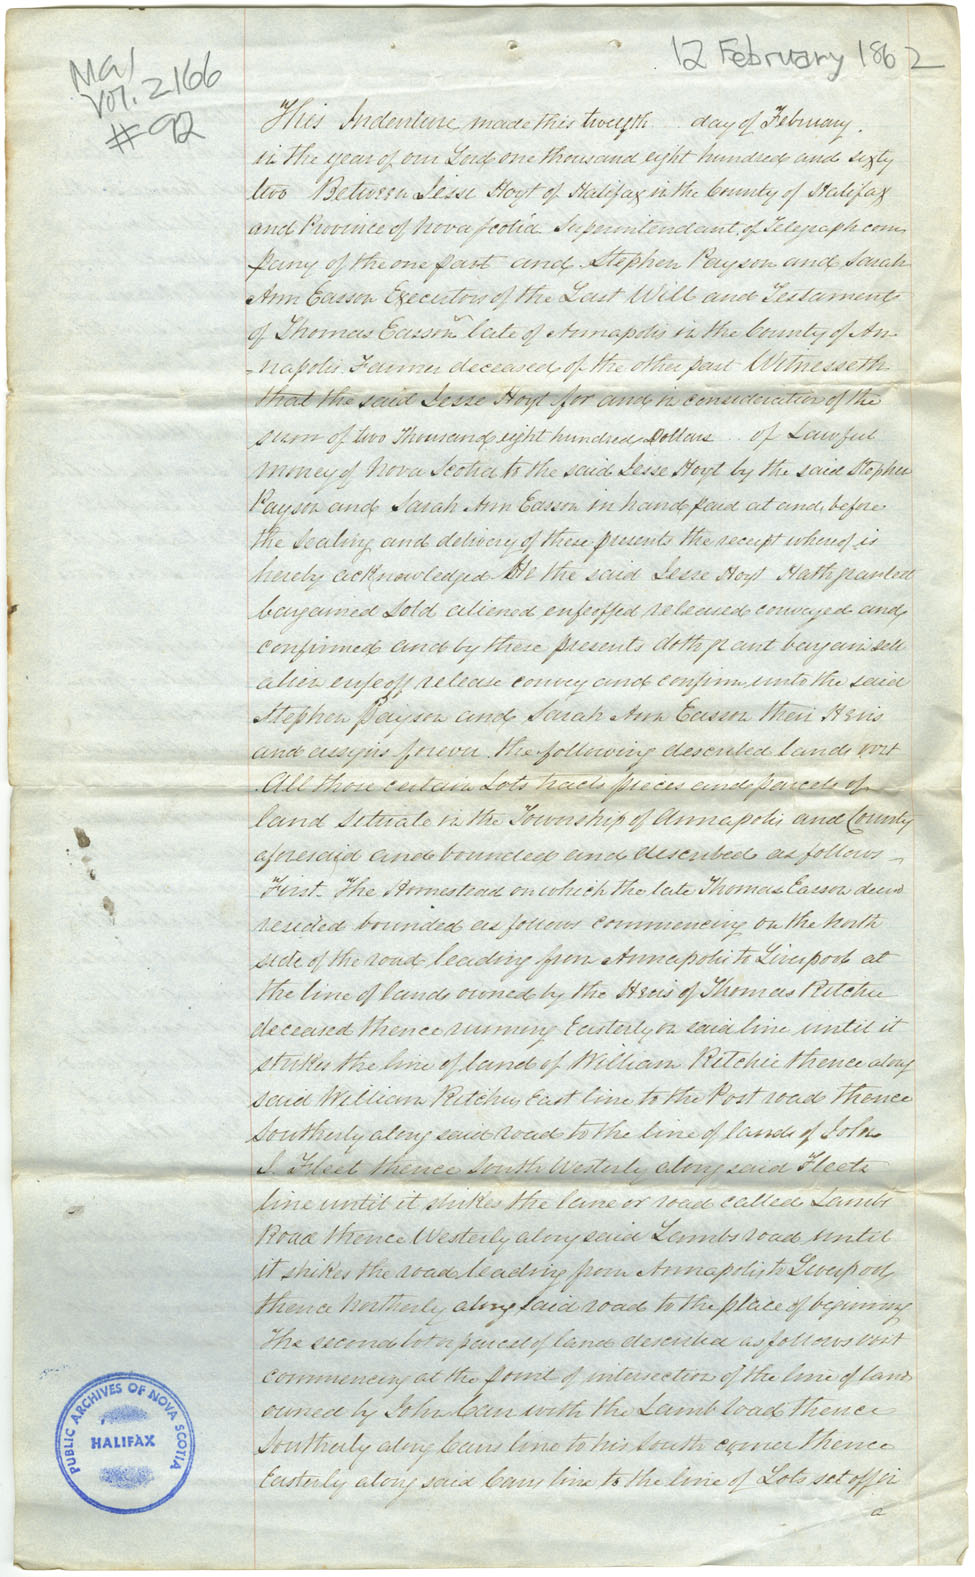 MG1
Vol. 2166
#92
12 February 1862
This Indenture made this twelfth day of February
in the year of our Lord one thousand eight hundred and sixty
two Between Jesse Hoyt of Halifax in the County of Halifax
and Province of Nova Scotia Superintendant of Telegraph com
pany of the one part and Stephen Payson and Sarah
Ann Easson Executors of the Last Will and Testament
of Thomas Easson late of Annapolis in the County of An-
-napolis Farmer deceased of the other part Witnesseth
that the said Jesse Hoyt for and in consideration of the
sum of two Thousand eight hundred Dollars of Lawful
money of Nova Scotia to the said Jesse Hoyt by the said Stephen
Payson and Sarah Ann Easson in hand paid at and before
the sealing and delivery of these presents the receipt whereof is
hereby acknowledged He the said Jesse Hoyt Hath granted
bargained sold aliened enfeoffed released conveyed and
confirmed and by these presents doth grant bargain sell
alien enfeoff release convey and confirm unto the said
Stephen Payson and Sarah Ann Easson their Heirs
and assigns forever the following described lands vizt
All those certain Lots tracts pieces and parcels of
land situate in the Township of Annapolis and County
aforesaid and bounded and described as follows
First The Homestead on which the late Thomas Easson
resided bounded as follows commencing on the North
side of the road leading from Annapolis to Liverpool at
the line of lands owned by the Heirs of Thomas Ritchie
deceased thence running Easterly on said line until it
strikes the line of land of William Ritchie thence along
said William Ritchies East line to the Post road thence
Southerly along said road to the line of lands of John
S. Fleet thence South Westerly along said Fleets
line until it strikes the lane or road called Lambs
Road thence Westerly along said Lambs road until
it strikes the road leading from Annapolis to Liverpool
thence Northerly along said road to the place of beginning
The second lot or parcel of land described as follows vizt
commencing at the point of intersection of the line of land
owned by John with the Lamb road thence
Southerly along line to his South corner thence
Easterly along said line to the line of Lots set off in
a
PUBLIC ARCHIVES OF NOVA SCOTIA
HALIFAX